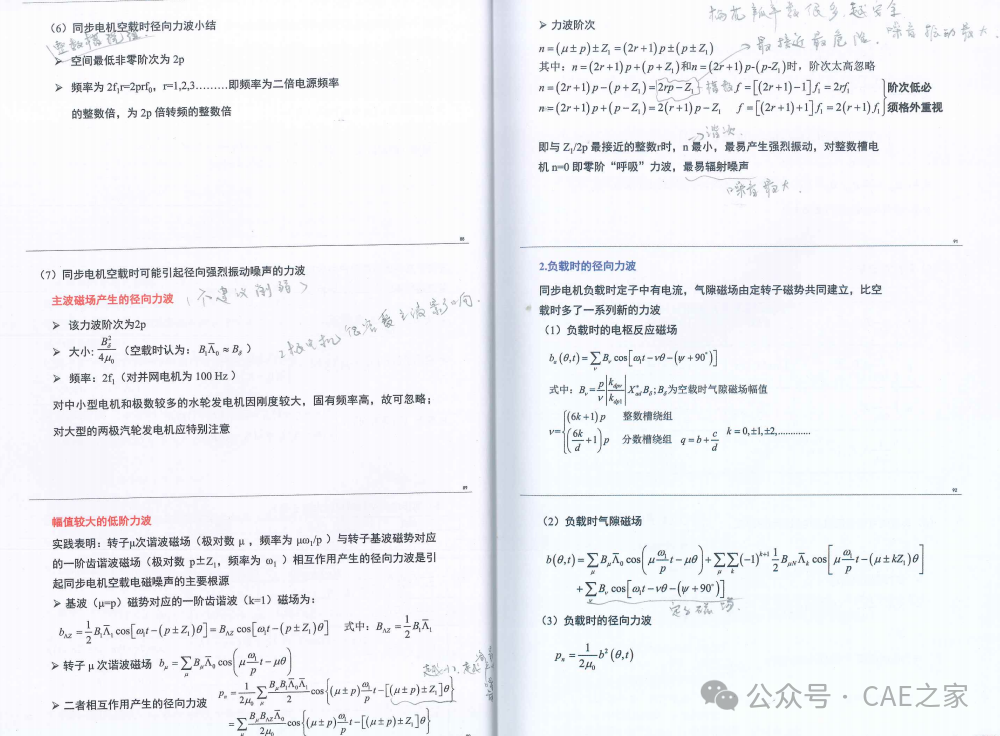 （6）同步电机空载时径向力波小结
➢ 空间最低非零阶次为 2p
➢ 频率为 2f₁r=2prf₀，r=1,2,3………即频率为二倍电源频率
的整数倍，为 2p 倍转频的整数倍
88
（7）同步电机空载时可能引起径向强烈振动噪声的力波
主波磁场产生的径向力波（不建议削弱）
➢ 该力波阶次为2p
➢ 大小: B_δ²/4μ₀ （空载时认为： B₁Λ̄₀ ≈ B_δ ）
➢ 频率：2f₁（对并网电机为 100 Hz ）
对中小型电机和极数较多的水轮发电机因刚度较大，固有频率高，故可忽略；
对大型的两极汽轮发电机应特别注意
89
幅值较大的低阶力波
实践表明：转子μ次谐波磁场（极对数 μ ，频率为 μω₁/p ）与转子基波磁势对应
的一阶齿谐波磁场（极对数 p±Z₁，频率为 ω₁ ）相互作用产生的径向力波是引
起同步电机空载电磁噪声的主要根源
➢ 基波（μ=p）磁势对应的一阶齿谐波（k=1）磁场为：
b_ΛZ = 1/2 B₁Λ̄₁ cos[ω₁t − (p ± Z₁)θ] = B_ΛZ cos[ω₁t − (p ± Z₁)θ] 式中： B_ΛZ = 1/2 B₁Λ̄₁
➢ 转子 μ 次谐波磁场 b_μ = ∑_μ B_μΛ̄₀ cos(μ ω₁/p t − μθ)
➢ 二者相互作用产生的径向力波 p_n = 1/2μ₀ ∑_μ B_μB₁Λ̄₀Λ̄₁/2 cos{(μ ± p) ω₁/p t − [(μ ± p) ± Z₁]θ}
= ∑_μ B_μB_ΛZΛ̄₀/2μ₀ cos{(μ ± p) ω₁/p t − [(μ ± p) ± Z₁]θ}
➢ 力波阶次
n = (μ ± p) ± Z₁ = (2r+1)p ± (p ± Z₁)
最接近最危险．噪音振动最大．
其中：n = (2r+1)p + (p + Z₁) 和 n = (2r+1)p-(p-Z₁) 时，阶次太高忽略
n = (2r+1)p − (p + Z₁) = 2rp − Z₁ f = [(2r+1) − 1]f₁ = 2rf₁
n = (2r+1)p + (p − Z₁) = 2(r+1)p − Z₁ f = [(2r+1) + 1]f₁ = 2(r+1)f₁
阶次低必
须格外重视
即与 Z₁/2p 最接近的整数r时，n 最小，最易产生强烈振动，对整数槽电
机 n=0 即零阶“呼吸”力波，最易辐射噪声
噪音最大．
91
2.负载时的径向力波
同步电机负载时定子中有电流，气隙磁场由定转子磁势共同建立，比空
载时多了一系列新的力波
（1）负载时的电枢反应磁场
b_a(θ,t) = ∑_ν B_ν cos[ω₁t − νθ − (ψ + 90°)]
式中：B_ν = p/ν |k_dpν/k_dp1| X*_ad B_δ; B_δ为空载时气隙磁场幅值
ν = { (6k+1)p 整数槽绕组
(6k/d + 1)p 分数槽绕组 q = b + c/d k = 0,±1,±2,………….
92
（2）负载时气隙磁场
b(θ,t) = ∑_μ B_μΛ̄₀ cos(μ ω₁/p t − μθ) + ∑_μ ∑_k (−1)^(k+1) 1/2 B_μN Λ̄_k cos[μ ω₁/p t − (μ ± kZ₁)θ]
+ ∑_ν B_ν cos[ω₁t − νθ − (ψ + 90°)]
定子磁场．
（3）负载时的径向力波
p_n = 1/2μ₀ b²(θ,t)
公众号 · CAE之家